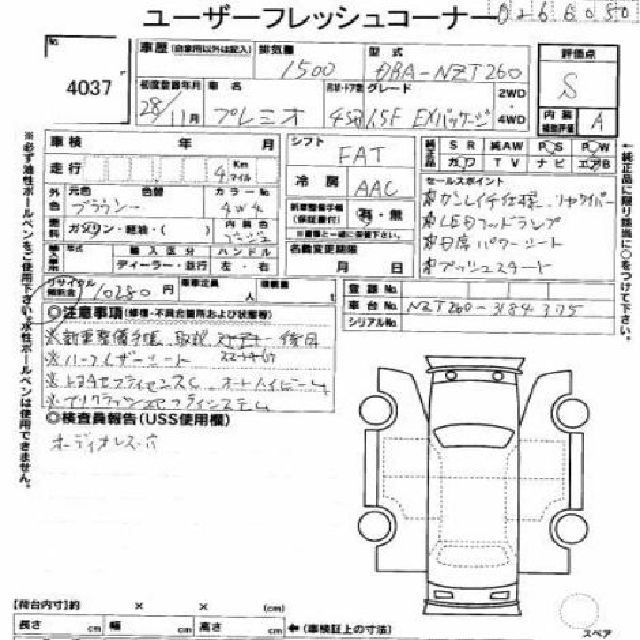 ユーザーフレッシュコーナー
0266050
4037
車歴 (自家用以外は記入) 排気量 型式 評価点
1500 DBA-NZT260 S
初度登録年月 車名 グレード 2WD 内装 補助評価
28/11月 プレミオ 4SD 1.5F EXパッケージ 4WD A
車検 年 月 シフト SR 純AW PS PW
FAT 革 TV ナビ エアB
走行 4 Km マイル 冷房 セールスポイント
AAC
外色 元色 色替 カラーNo.
ブラウン 4W4 新車整備手帳 (保証書付) 有・無
燃料 ガソリン・軽油・( ) 内装色 ベージュ ※車検証と一緒に保管下さい。
LEDヘッドランプ
輸入車 年式 輸入区分 ハンドル 名義変更期限
ディーラー・並行 左・右 月 日
パワーシート
プッシュスタート
リサイクル預託金 10280円 車歴定員 人 積載量 t
登録No.
車台No. NZT260-3184375
シリアルNo.
◎注意事項 (修復・不具合箇所および状態等)
※新車整備手帳、取説
※トヨタセーフティセンスC オートハイビーム
◎検査員報告(USS使用欄)
オーディオレス 穴
※必ず油性ボールペンをご使用下さい。水性ボールペンは使用できません。
↑純正品に限り該当に○をつけて下さい。
【荷台内寸】約 × × (cm)
長さ cm 幅 cm 高さ cm ←(車検証上の寸法)
スペア